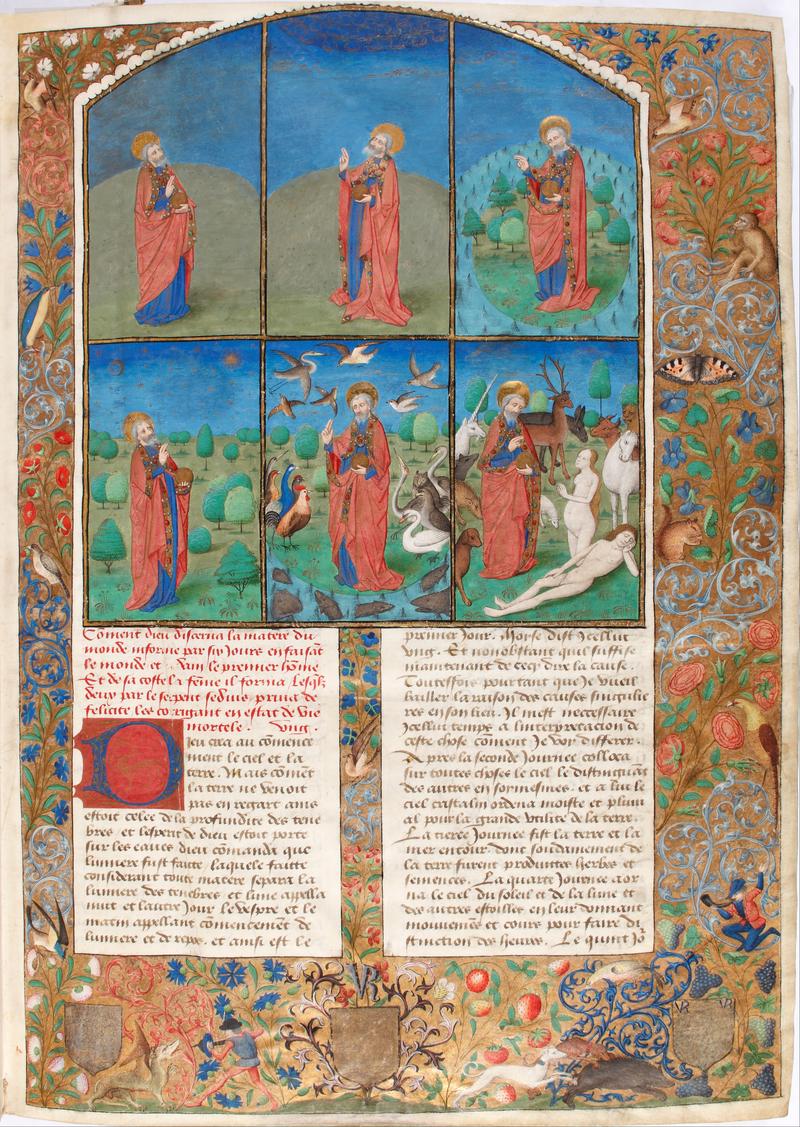 Coment dieu discerna la matere du
monde informe par six jours en faisāt
le monde et . Dun le premier hōme
Et de sa coste la fēme il forma lesqlz
deux par le serpent seduis priua de
felicite les corrigant en estat de vie
mortele . Vng .
Dieu crea au cōmence
ment le ciel et la
terre . Mais cōmēt
la terre ne venoit
pas en regart ains
estoit celee de la profundite des tene
bres . et lesperit de dieu estoit porte
sur les eaues dieu cōmanda que
lumiere fust faitte . laquele faitte
considerant toute matere separa la
lumiere des tenebres . et lune appella
nuit et lautre jour le vespre et le
matin appellant cōmencemēt de
lumiere et de repos . et ainsi est le
premier jour . Moyse dist Jcellui
vng . Et nonobstant quil suffise
maintenant de cecy dire la cause .
Touteffois pourtant que Je vueil
bailler la raison des causes singulie
res en son lieu . Jl mest necessaire
Jcellui temps a linterpretacion de
ceste chose cōment Je voy differer .
Apres la seconde Journee colloca
sur toutes choses le ciel le distinguāt
des autres en soy mesmes . et a lui le
ciel cristalin ordena moiste et pluui
al pour la grande vtilite de la terre .
La tierce Journee fist la terre et la
mer entour . dont soudainement de
la terre furent produittes herbes et
semences . La quarte Journee aor
na le ciel du soleil et de la lune et
des autres estoilles en leur donnant
mouuemēs et cours pour faire di
stinction des heures . Le quint Jo
VR
VR VR